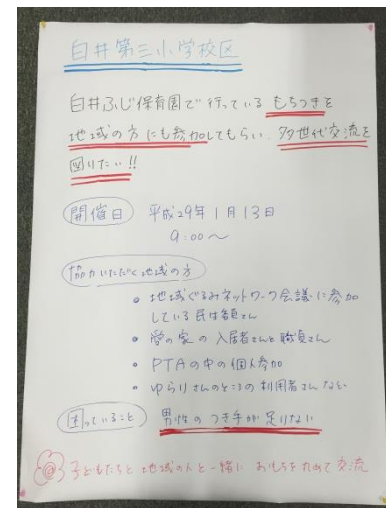 白井第三小学校区
白井ふじ保育園で行っているもちつきを
地域の方にも参加してもらい、多世代交流を
図りたい!!
開催日 平成29年1月13日
9:00〜
協力いただく地域の方
• 地域ぐるみネットワーク会議に参加
している民生委員さん
• 愛の家の入居者さんと職員さん
• PTAの中の個人参加
• ゆらりさんのところの利用者さんなど
困っていること 男性のつき手が足りない
子どもたちと地域の人と一緒におもちを丸めて交流